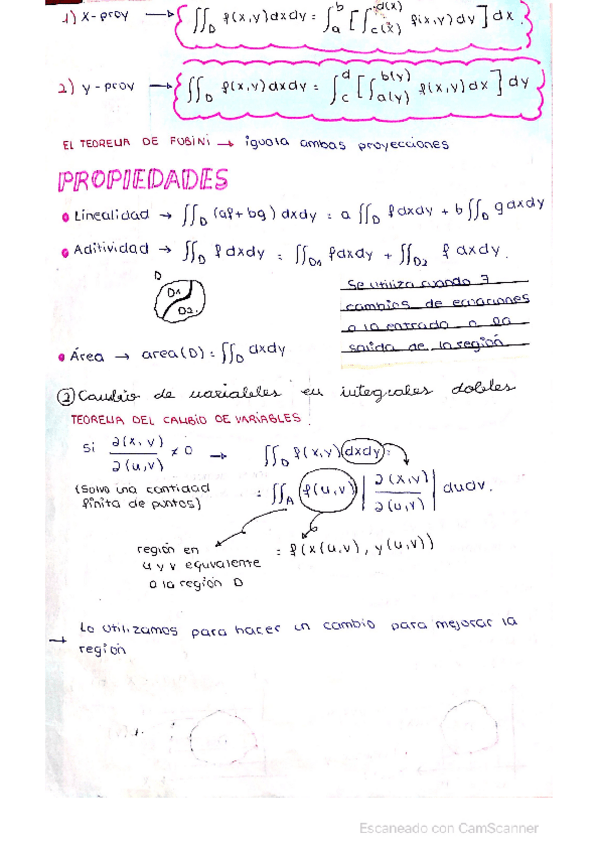 1) x-proy → ∬_D f(x,y)dxdy = ∫_a^b [∫_{c(x)}^{d(x)} f(x,y)dy] dx.
2) y-proy → ∬_D f(x,y)dxdy = ∫_c^d [∫_{a(y)}^{b(y)} f(x,y)dx] dy
EL TEOREMA DE FUBINI → iguala ambas proyecciones
PROPIEDADES
• Linealidad → ∬_D (af+bg) dxdy = a ∬_D fdxdy + b ∬_D gdxdy
• Aditividad → ∬_D f dxdy = ∬_{D1} fdxdy + ∬_{D2} f dxdy.
D
D1
D2
Se utiliza cuando ∃
cambios de ecuaciones
a la entrada o la
salida de la región
• Área → area(D) = ∬_D dxdy
② Cambio de variables en integrales dobles
TEOREMA DEL CAMBIO DE VARIABLES.
Si ∂(x,y)/∂(u,v) ≠ 0 → ∬_D f(x,y) dxdy =
(Salvo una cantidad
finita de puntos)
= ∬_A f(u,v) |∂(x,y)/∂(u,v)| dudv.
región en
u y v equivalente
a la región D
= f(x(u,v), y(u,v))
→ Lo utilizamos para hacer un cambio para mejorar la
región
Escaneado con CamScanner